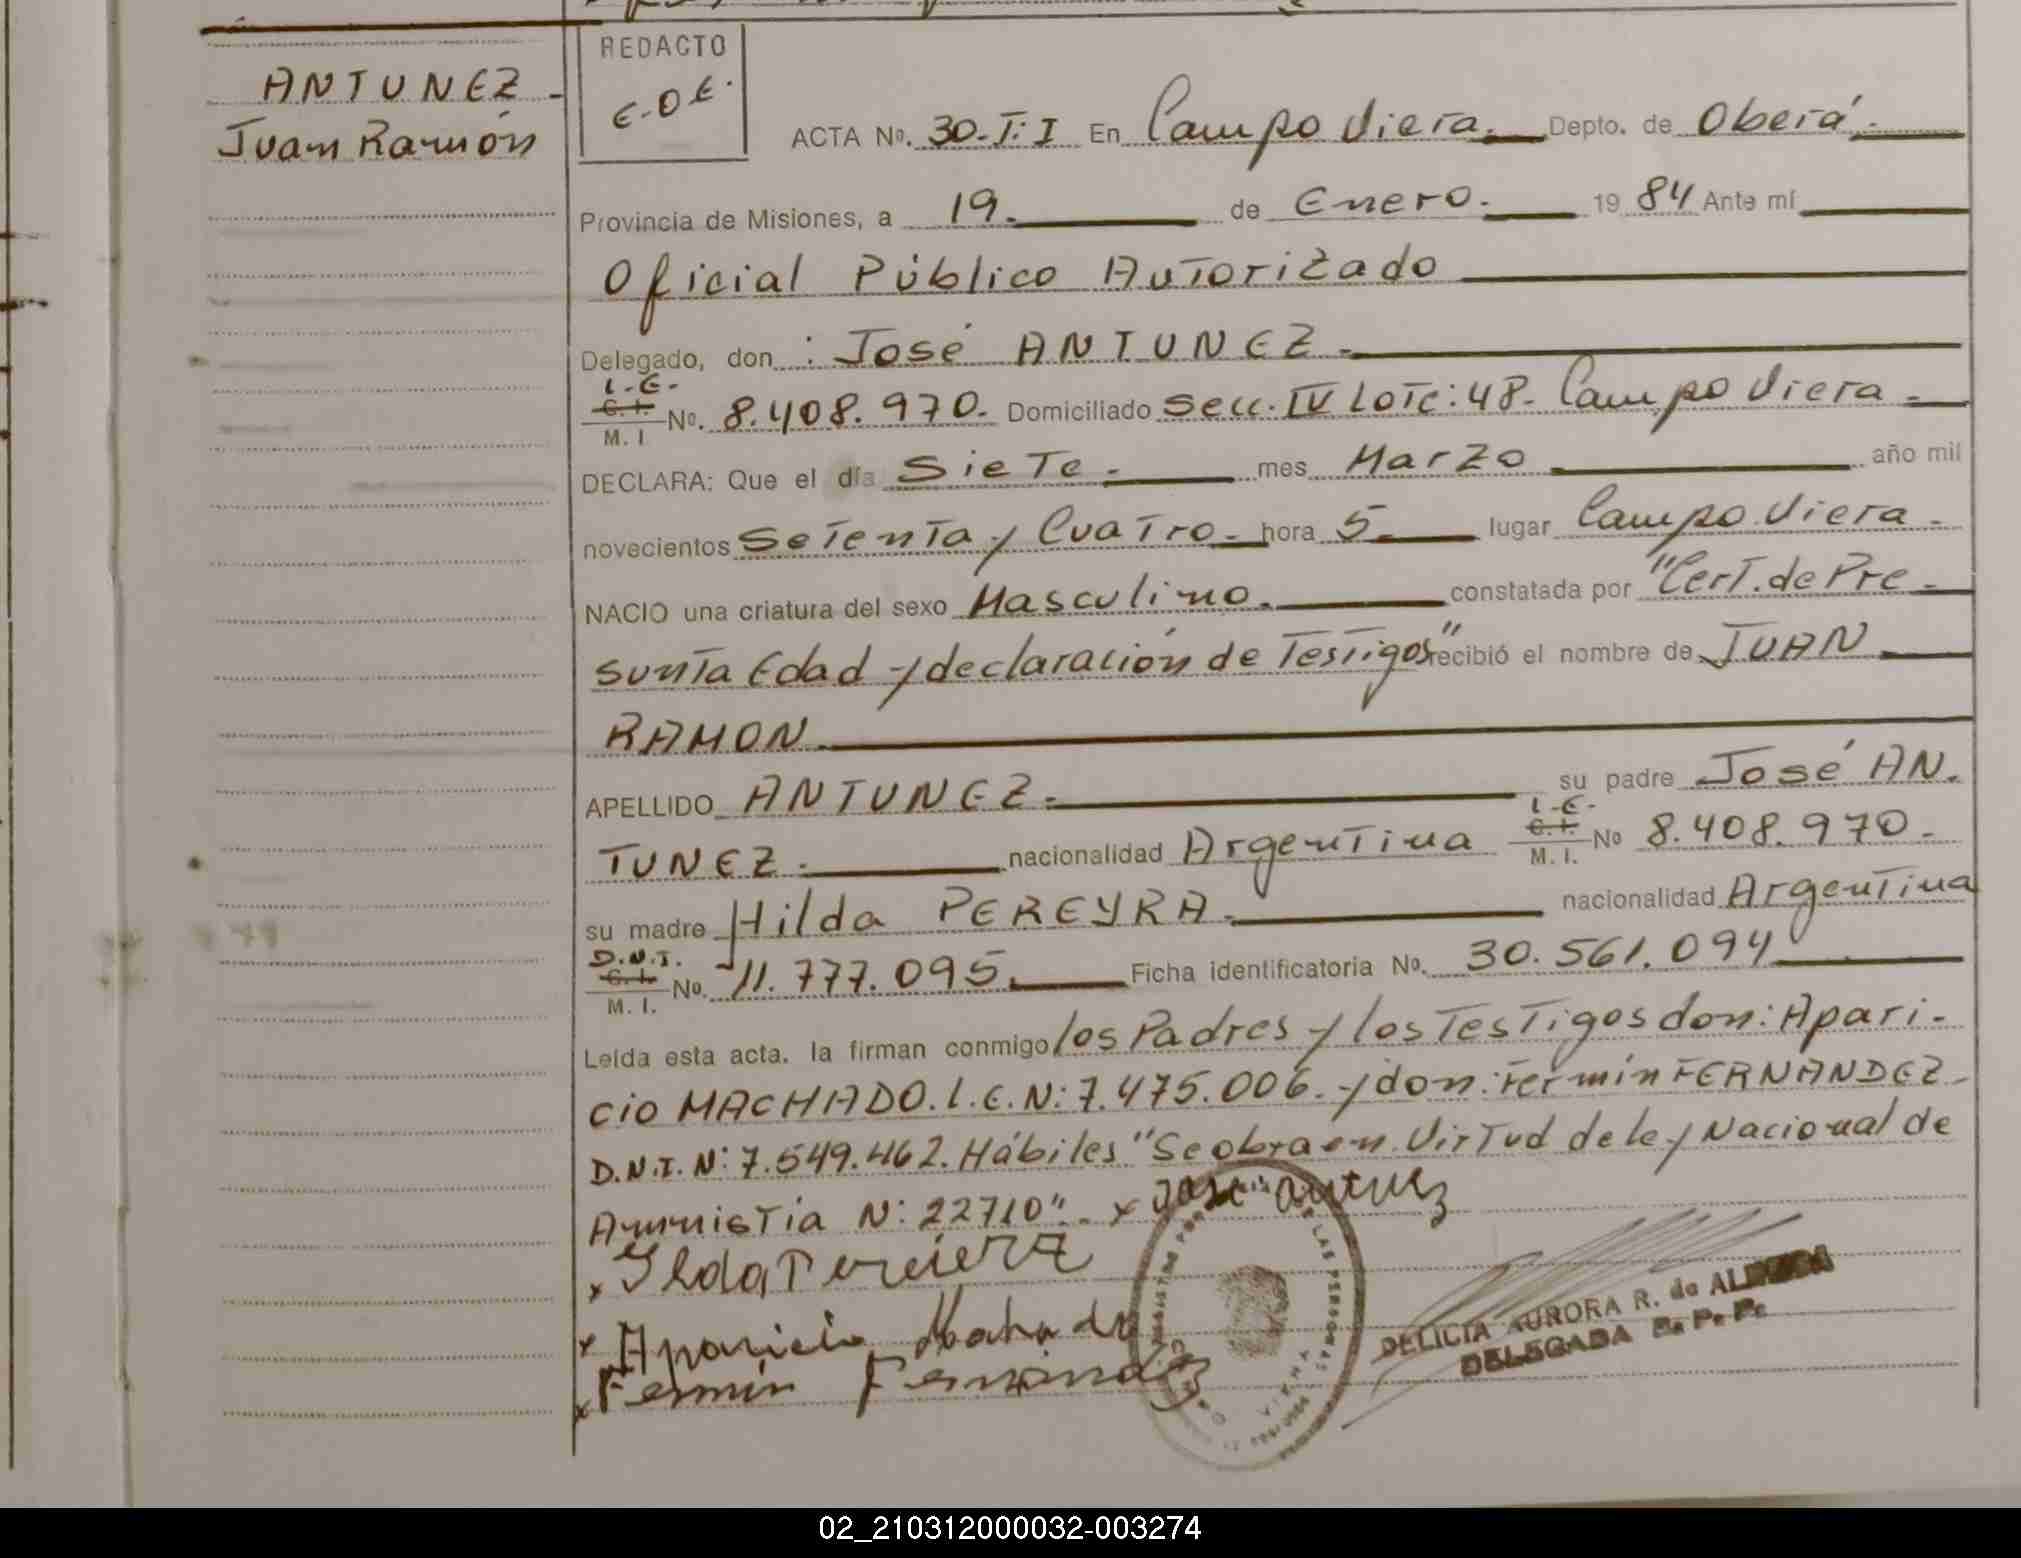 ANTUNEZ.
Juan Ramón
REDACTO
E.O.E.
ACTA Nº. 30-T:I En Campo Viera. Depto. de Oberá.
Provincia de Misiones, a 19. de Enero. 1984 Ante mí
Oficial Público AuTorizado
Delegado, don : José ANTUNEZ.
L.E.
C.I.
M.I Nº. 8.408.970. Domiciliado Secc. IV LoTe: 48. Campo Viera.
DECLARA: Que el día SieTe. mes Marzo año mil
novecientos SeTenTa y CuaTro. hora 5. lugar Campo Viera.
NACIO una criatura del sexo Masculino. constatada por "CerT. de Pre-
sunTa Edad y declaración de TesTigos" recibió el nombre de JUAN
RAMON.
APELLIDO ANTUNEZ. su padre José AN.
L.E.
C.I.
M.I. Nº 8.408.970.
TUNEZ. nacionalidad ArgenTina
su madre Hilda PEREYRA. nacionalidad ArgenTina
D.N.I.
C.I.
M.I. Nº. 11.777.095. Ficha identificatoria Nº. 30.561.094
Leída esta acta. la firman conmigo los Padres y los TesTigos don: Apari-
cio MACHADO. L.E. N: 7.475.006. y don: Fermín FERNANDEZ
D.N.I. N: 7.549.462. Hábiles "Se obra en VirTud de ley Nacional de
AmnisTia N: 22710". x Jose antunez
x Ilda Pereiera
x Aparicio Machado
x Fermin Fernandez
DELICIA AURORA R. de
DELEGADA R. P. P.
02_210312000032-003274